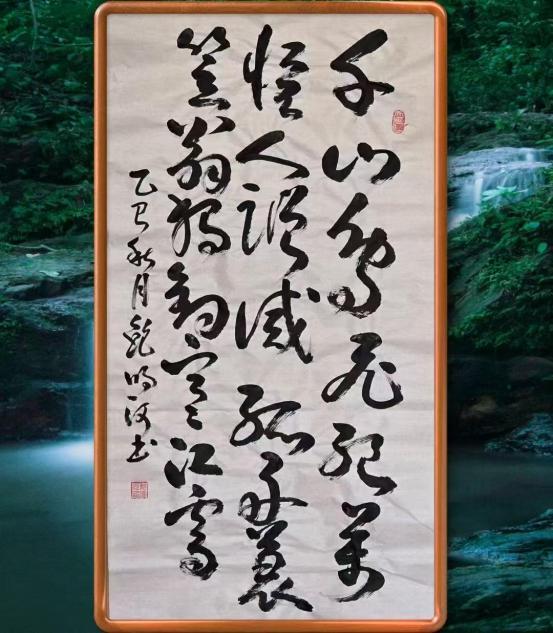 千山鳥飛絕萬
徑人蹤滅孤舟蓑
笠翁獨釣寒江雪
乙巳秋月 河书